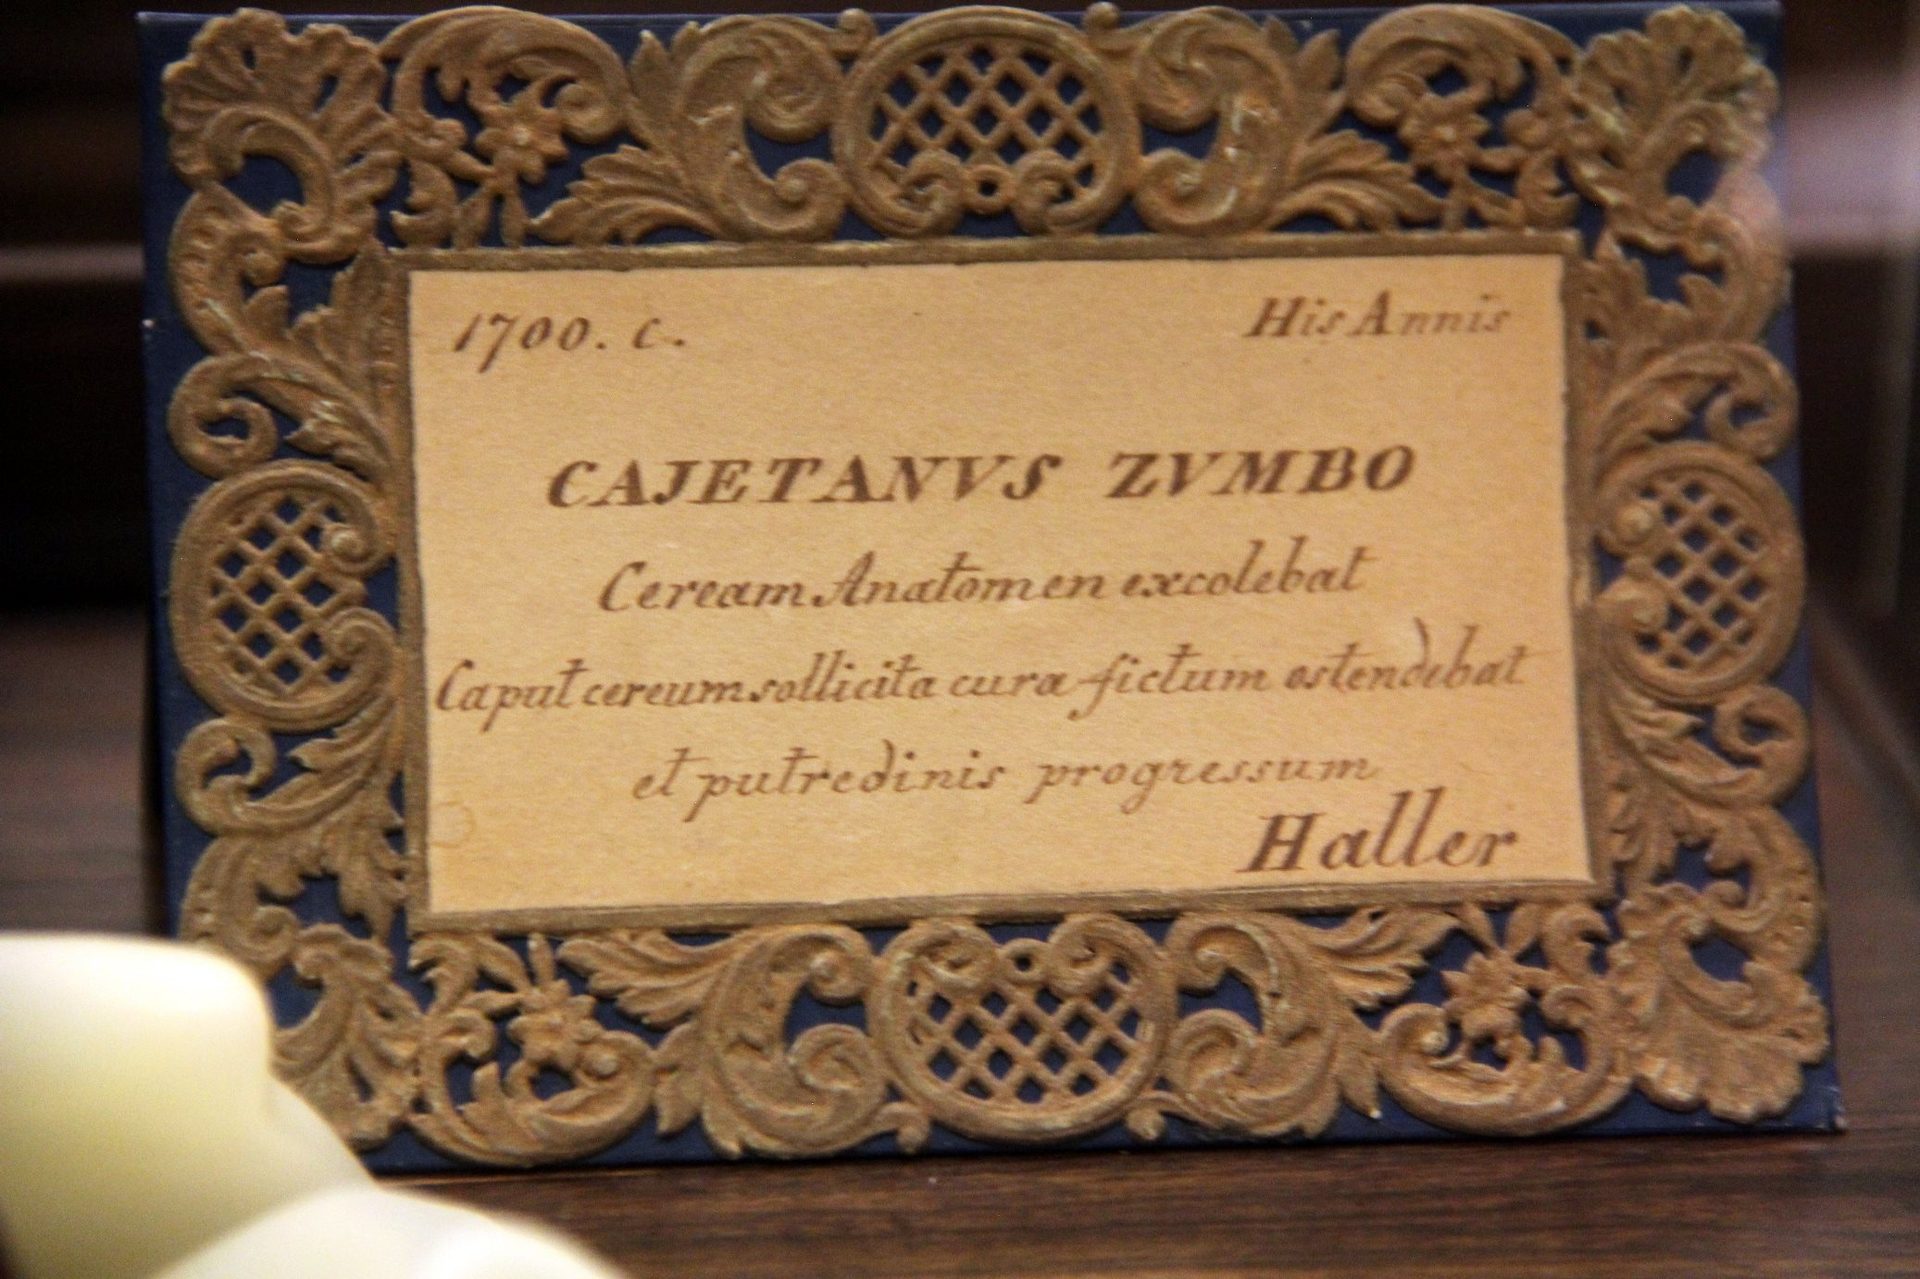 1700. c. His Annis
CAJETANVS ZVMBO
Ceream Anatomen excolebat
Caput cereum sollicita cura fictum ostendebat
et putredinis progressum
Haller